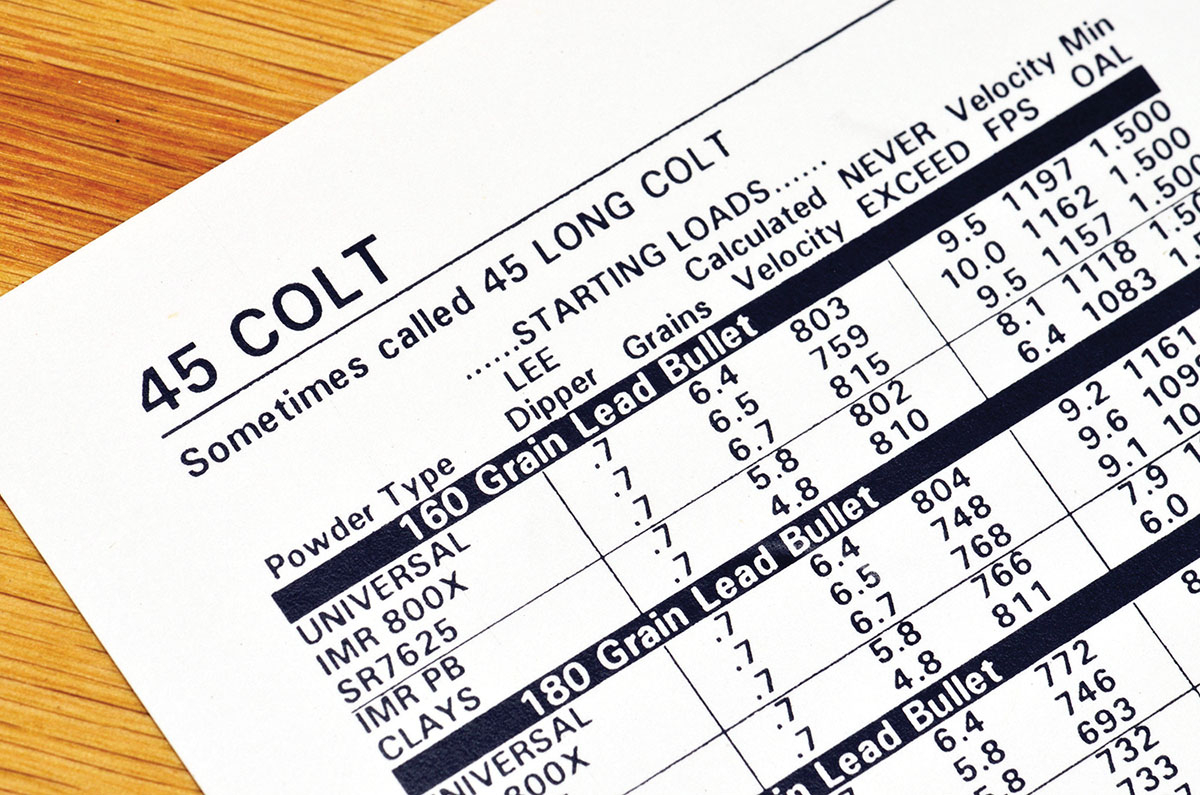 45 COLT
Sometimes called 45 LONG COLT
......STARTING LOADS......
LEE Calculated NEVER Velocity Min
Powder Type Dipper Grains Velocity EXCEED FPS OAL
160 Grain Lead Bullet
UNIVERSAL .7 6.4 803 9.5 1197 1.500
IMR 800X .7 6.5 759 10.0 1162 1.500
SR7625 .7 6.7 815 9.5 1157 1.500
IMR PB .7 5.8 802 8.1 1118 1.50
CLAYS .7 4.8 810 6.4 1083 1.
180 Grain Lead Bullet
NIVERSAL .7 6.4 804 9.2 1161
800X .7 6.5 748 9.6 109
.7 6.7 768 9.1 10
.7 5.8 766 7.9 1
.7 4.8 811 6.0
Lead Bullet
6.4 772
5.8 746
.8 693
732
733